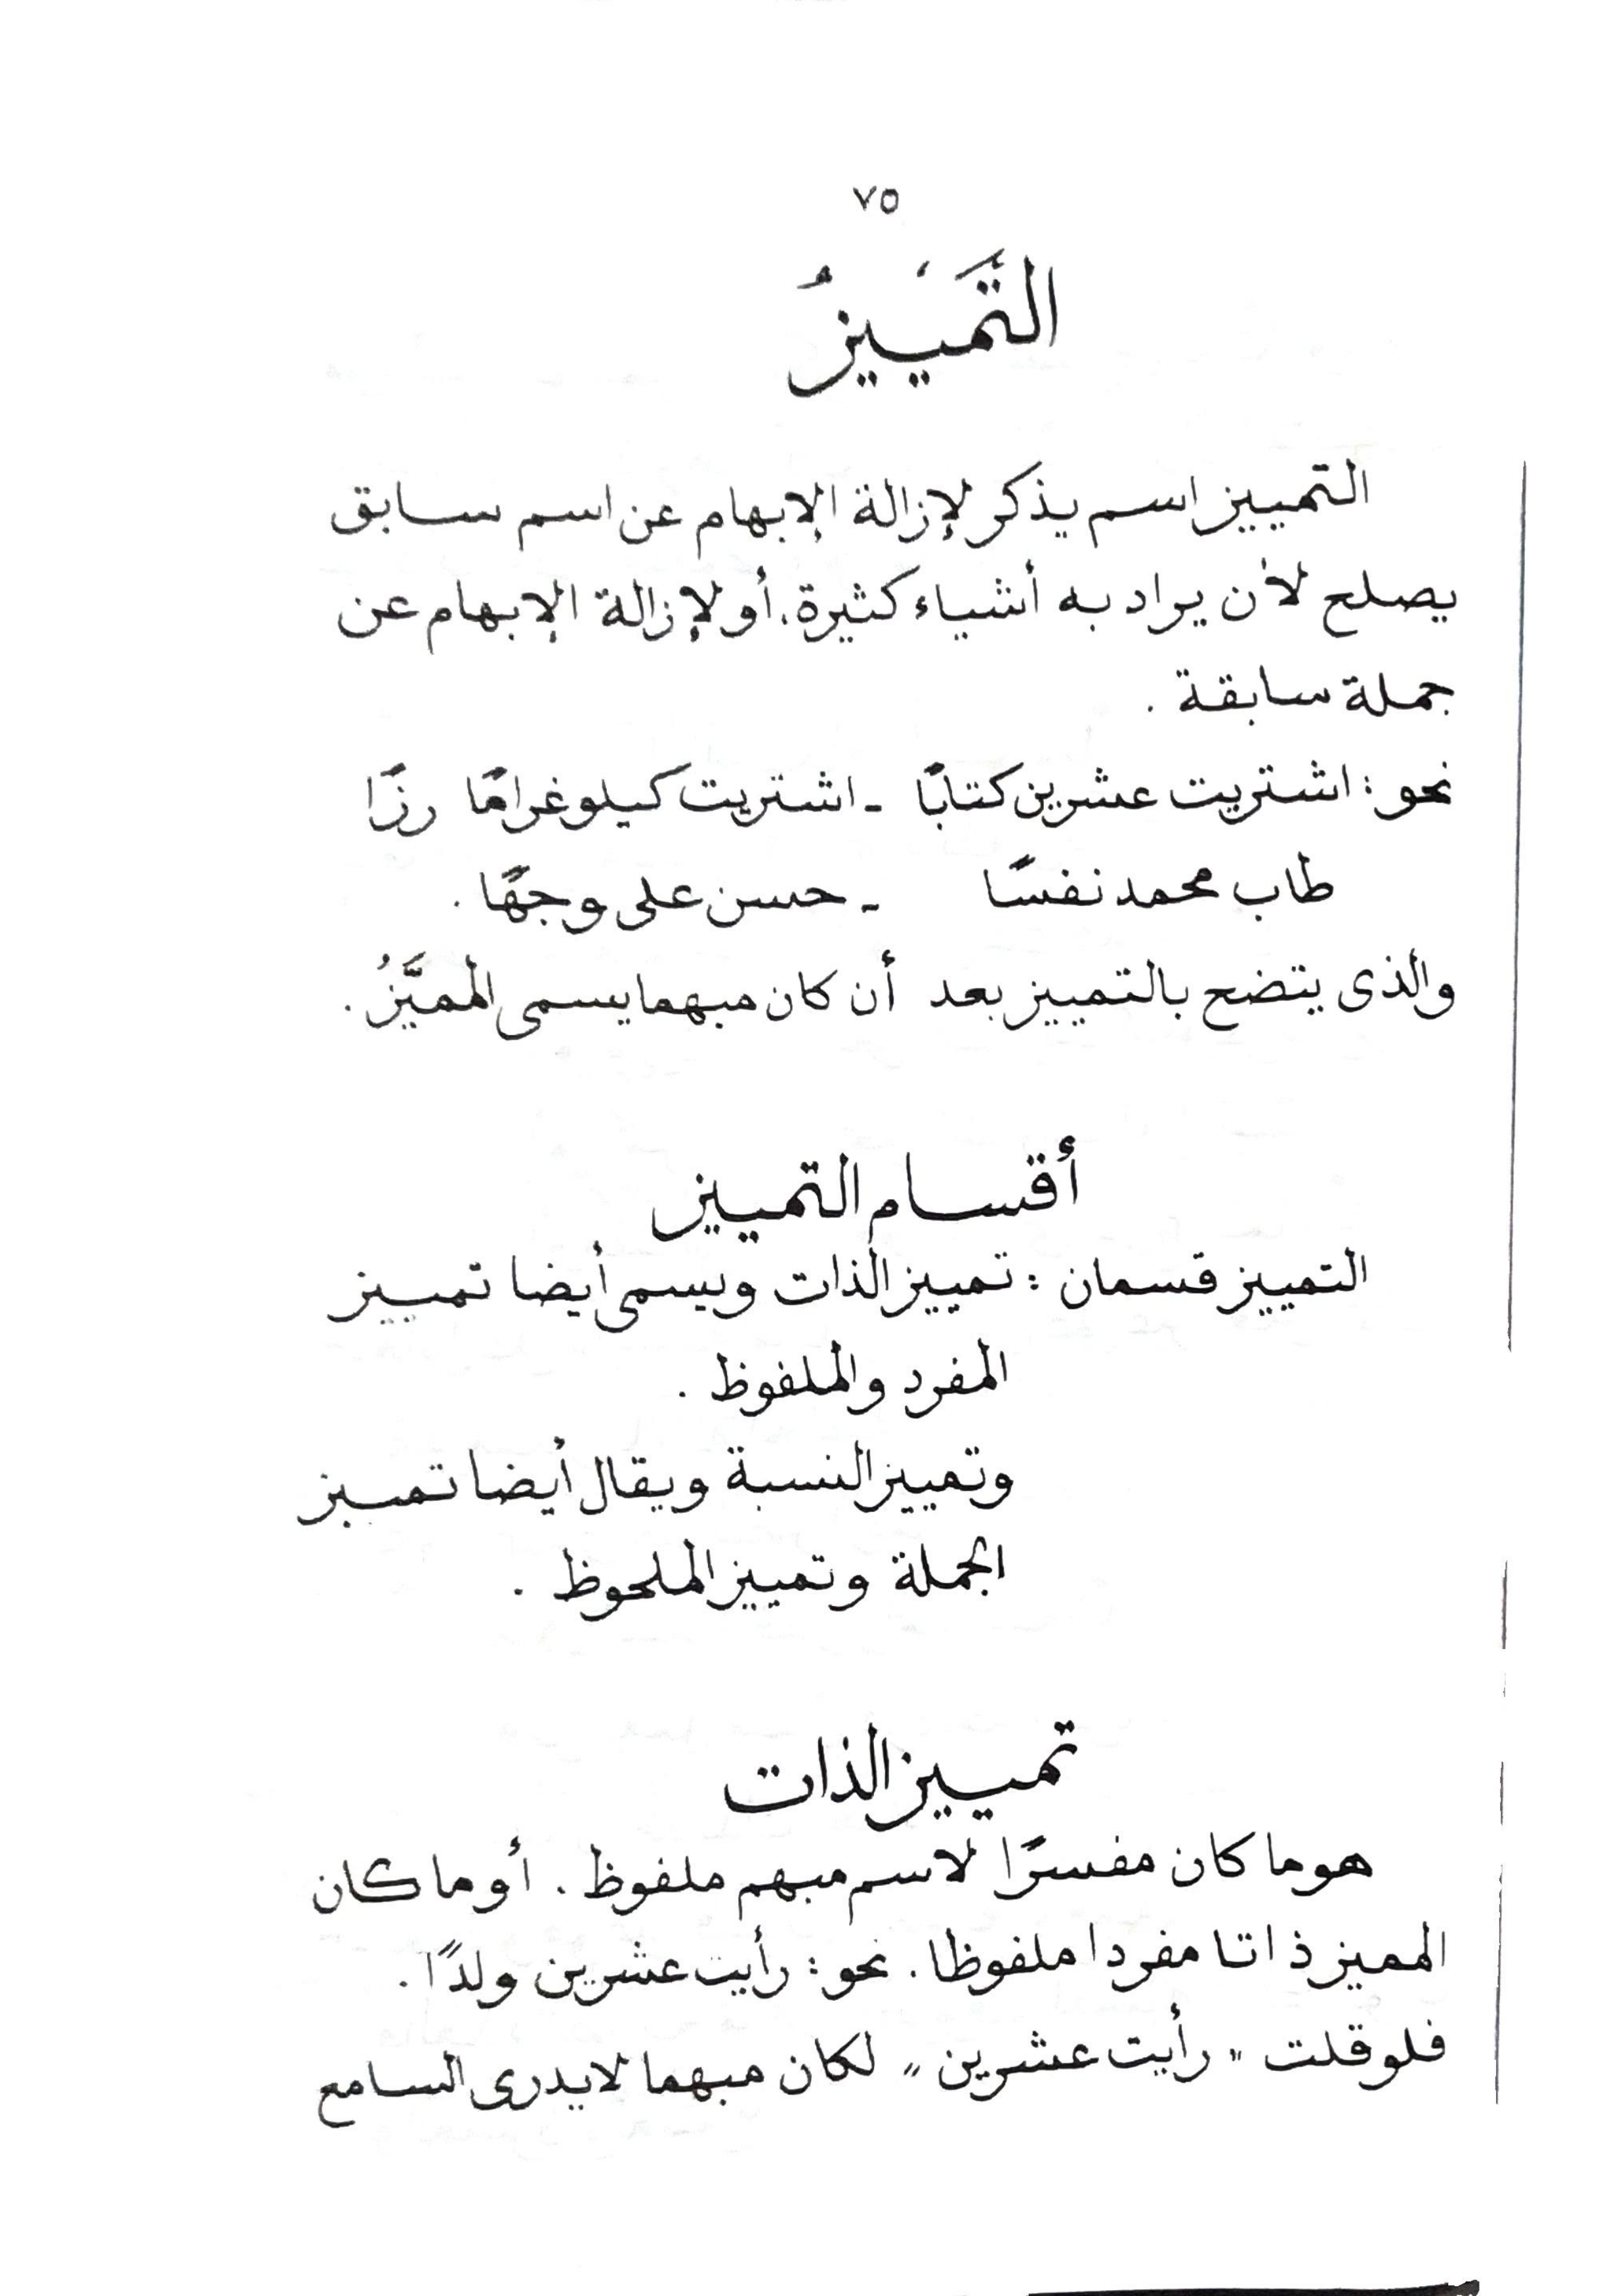 ٧٥
التَّمَييزُ
التمييز اسم يذكر لإزالة الإبهام عن اسم سابق
يصلح لأن يراد به أشياء كثيرة. أو لإزالة الإبهام عن
جملة سابقة .
نحو : اشتريت عشرين كتابًا - اشتريت كيلو غرامًا رزًا
طاب محمد نفسًا - حسن على وجهًا .
والذى يتضح بالتمييز بعد أن كان مبهما يسمى المميَّزُ .
أقسام التمييز
التمييز قسمان : تمييز الذات ويسمى أيضا تمييز
المفرد والملفوظ .
وتمييز النسبة ويقال أيضا تمييز
الجملة وتمييز الملحوظ .
تمييز الذات
هو ما كان مفسرًا لاسم مبهم ملفوظ . أو ما كان
المميز ذاتا مفردا ملفوظا . نحو : رأيت عشرين ولدًا .
فلو قلت " رأيت عشرين " لكان مبهما لا يدرى السامع